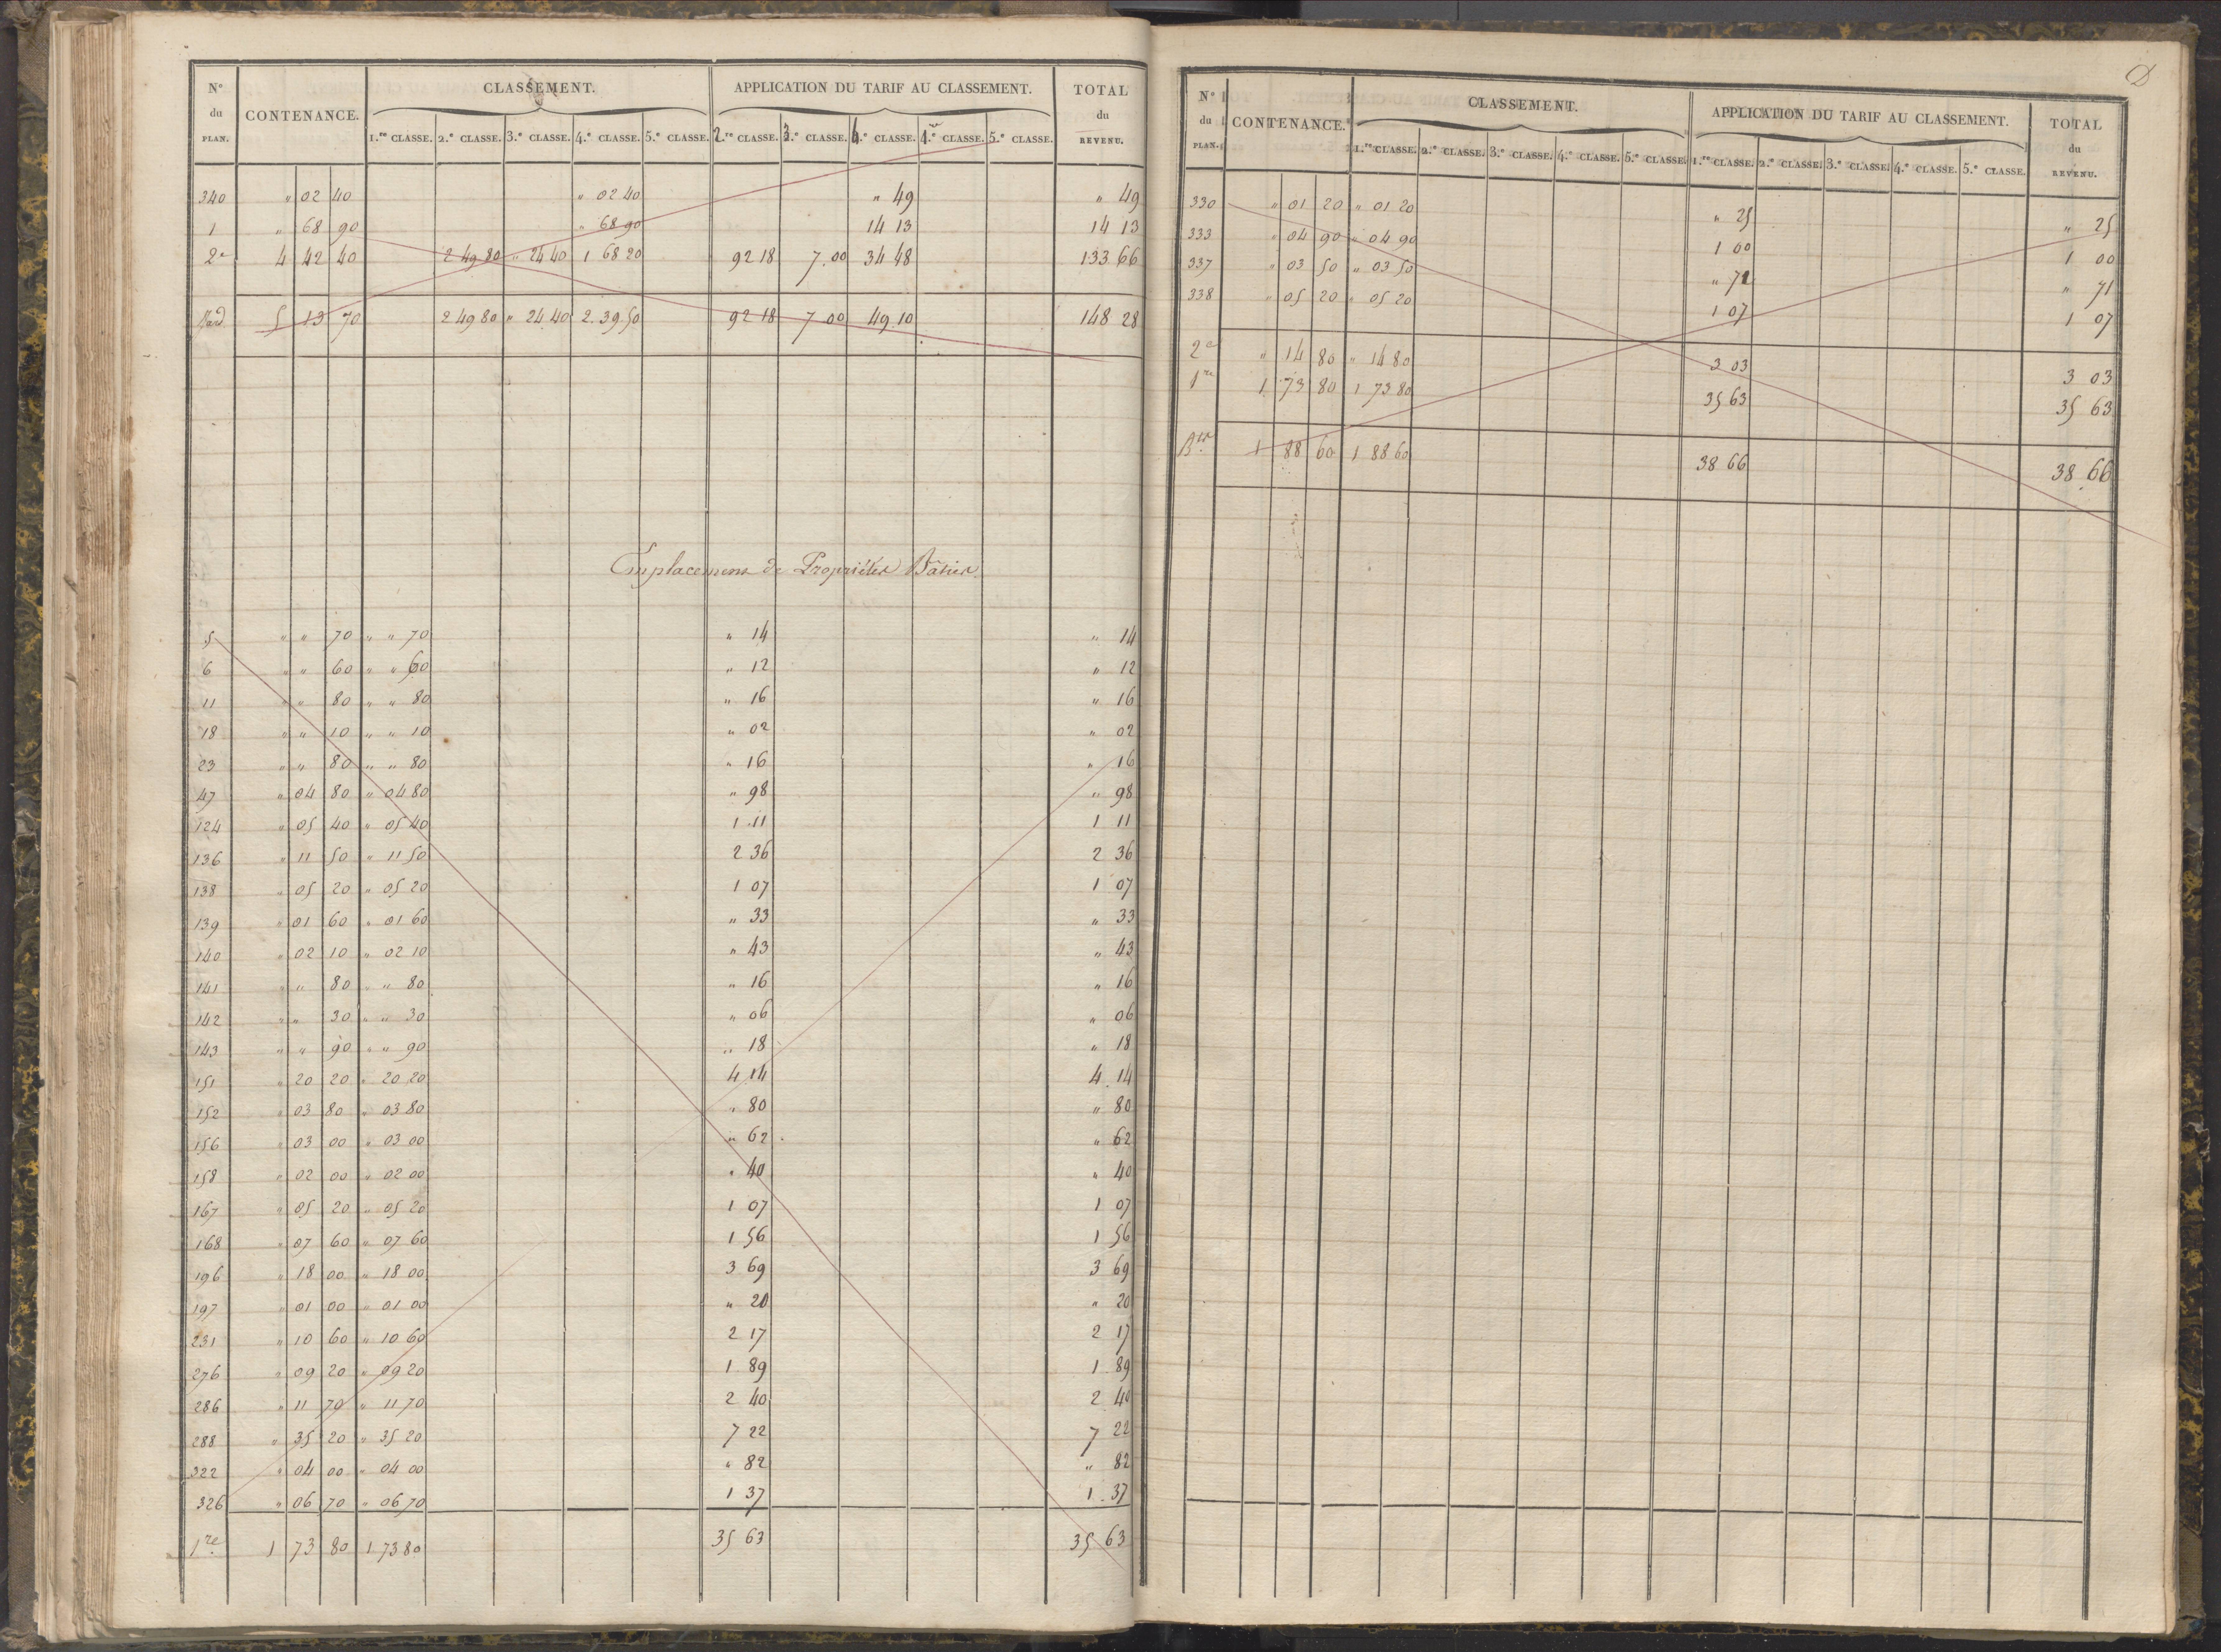 N° du PLAN. CONTENANCE. CLASSEMENT. APPLICATION DU TARIF AU CLASSEMENT. TOTAL du REVENU.
1.re CLASSE. 2.e CLASSE. 3.e CLASSE. 4.e CLASSE. 5.e CLASSE. 2.re CLASSE. 3.e CLASSE. 4.e CLASSE. 1.re CLASSE. 5.e CLASSE.
340 " 02 40 " 02 40 " 49 " 49
1 " 68 90 " 68 90 14 13 14 13
2e 4 42 40 2 49 80 " 24 40 1 68 20 92 18 7.00 34 48 133 66
5 13 70 2 49 80 " 24 40 2.39 50 92 18 7 00 49.10 148 28
Emplacemens de Propriétés Bâties
5 " " 70 " " 70 " 14 " 14
6 " " 60 " " 60 " 12 " 12
11 " " 80 " " 80 " 16 " 16
18 " " 10 " " 10 " 02 " 02
23 " " 80 " " 80 " 16 " 16
47 " 04 80 " 04 80 " 98 " 98
124 " 05 40 " 05 40 1.11 1 11
136 " 11 50 " 11 50 2 36 2 36
138 " 05 20 " 05 20 1 07 1 07
139 " 01 60 " 01 60 " 33 " 33
140 " 02 10 " 02 10 " 43 " 43
141 " " 80 " " 80 " 16 " 16
142 " " 30 " " 30 " 06 " 06
143 " " 90 " " 90 " 18 " 18
151 " 20 20 " 20 20 4.14 4.14
152 " 03 80 " 03 80 " 80 " 80
156 " 03 00 " 03 00 " 62 " 62
158 " 02 00 " 02 00 " 40 " 40
167 " 05 20 " 05 20 1 07 1 07
168 " 07 60 " 07 60 1 56 1 56
196 " 18 00 " 18 00 3 69 3 69
197 " 01 00 " 01 00 " 20 " 20
231 " 10 60 " 10 60 2 17 2 17
276 " 09 20 " 09 20 1 89 1 89
286 " 11 70 " 11 70 2 40 2 40
288 " 35 20 " 35 20 7 22 7 22
322 " 04 00 " 04 00 " 82 " 82
326 " 06 70 " 06 70 1 37 1.37
1re 1 73 80 1 73 80 35 63 35 63
N° du PLAN. CONTENANCE. CLASSEMENT. APPLICATION DU TARIF AU CLASSEMENT. TOTAL du REVENU.
1.re CLASSE. 2.e CLASSE. 3.e CLASSE. 4.e CLASSE. 5.e CLASSE. 1.re CLASSE. 2.e CLASSE. 3.e CLASSE. 4.e CLASSE. 5.e CLASSE.
330 " 01 20 " 01 20 " 25 " 25
333 " 04 90 " 04 90 1 00 1 00
337 " 03 50 " 03 50 " 71 " 71
338 " 05 20 " 05 20 1 07 1 07
2e " 14 80 " 14 80 3 03 3 03
1re 1 73 80 1 73 80 35 63 35 63
1 88 60 1 88 60 38 66 38.66